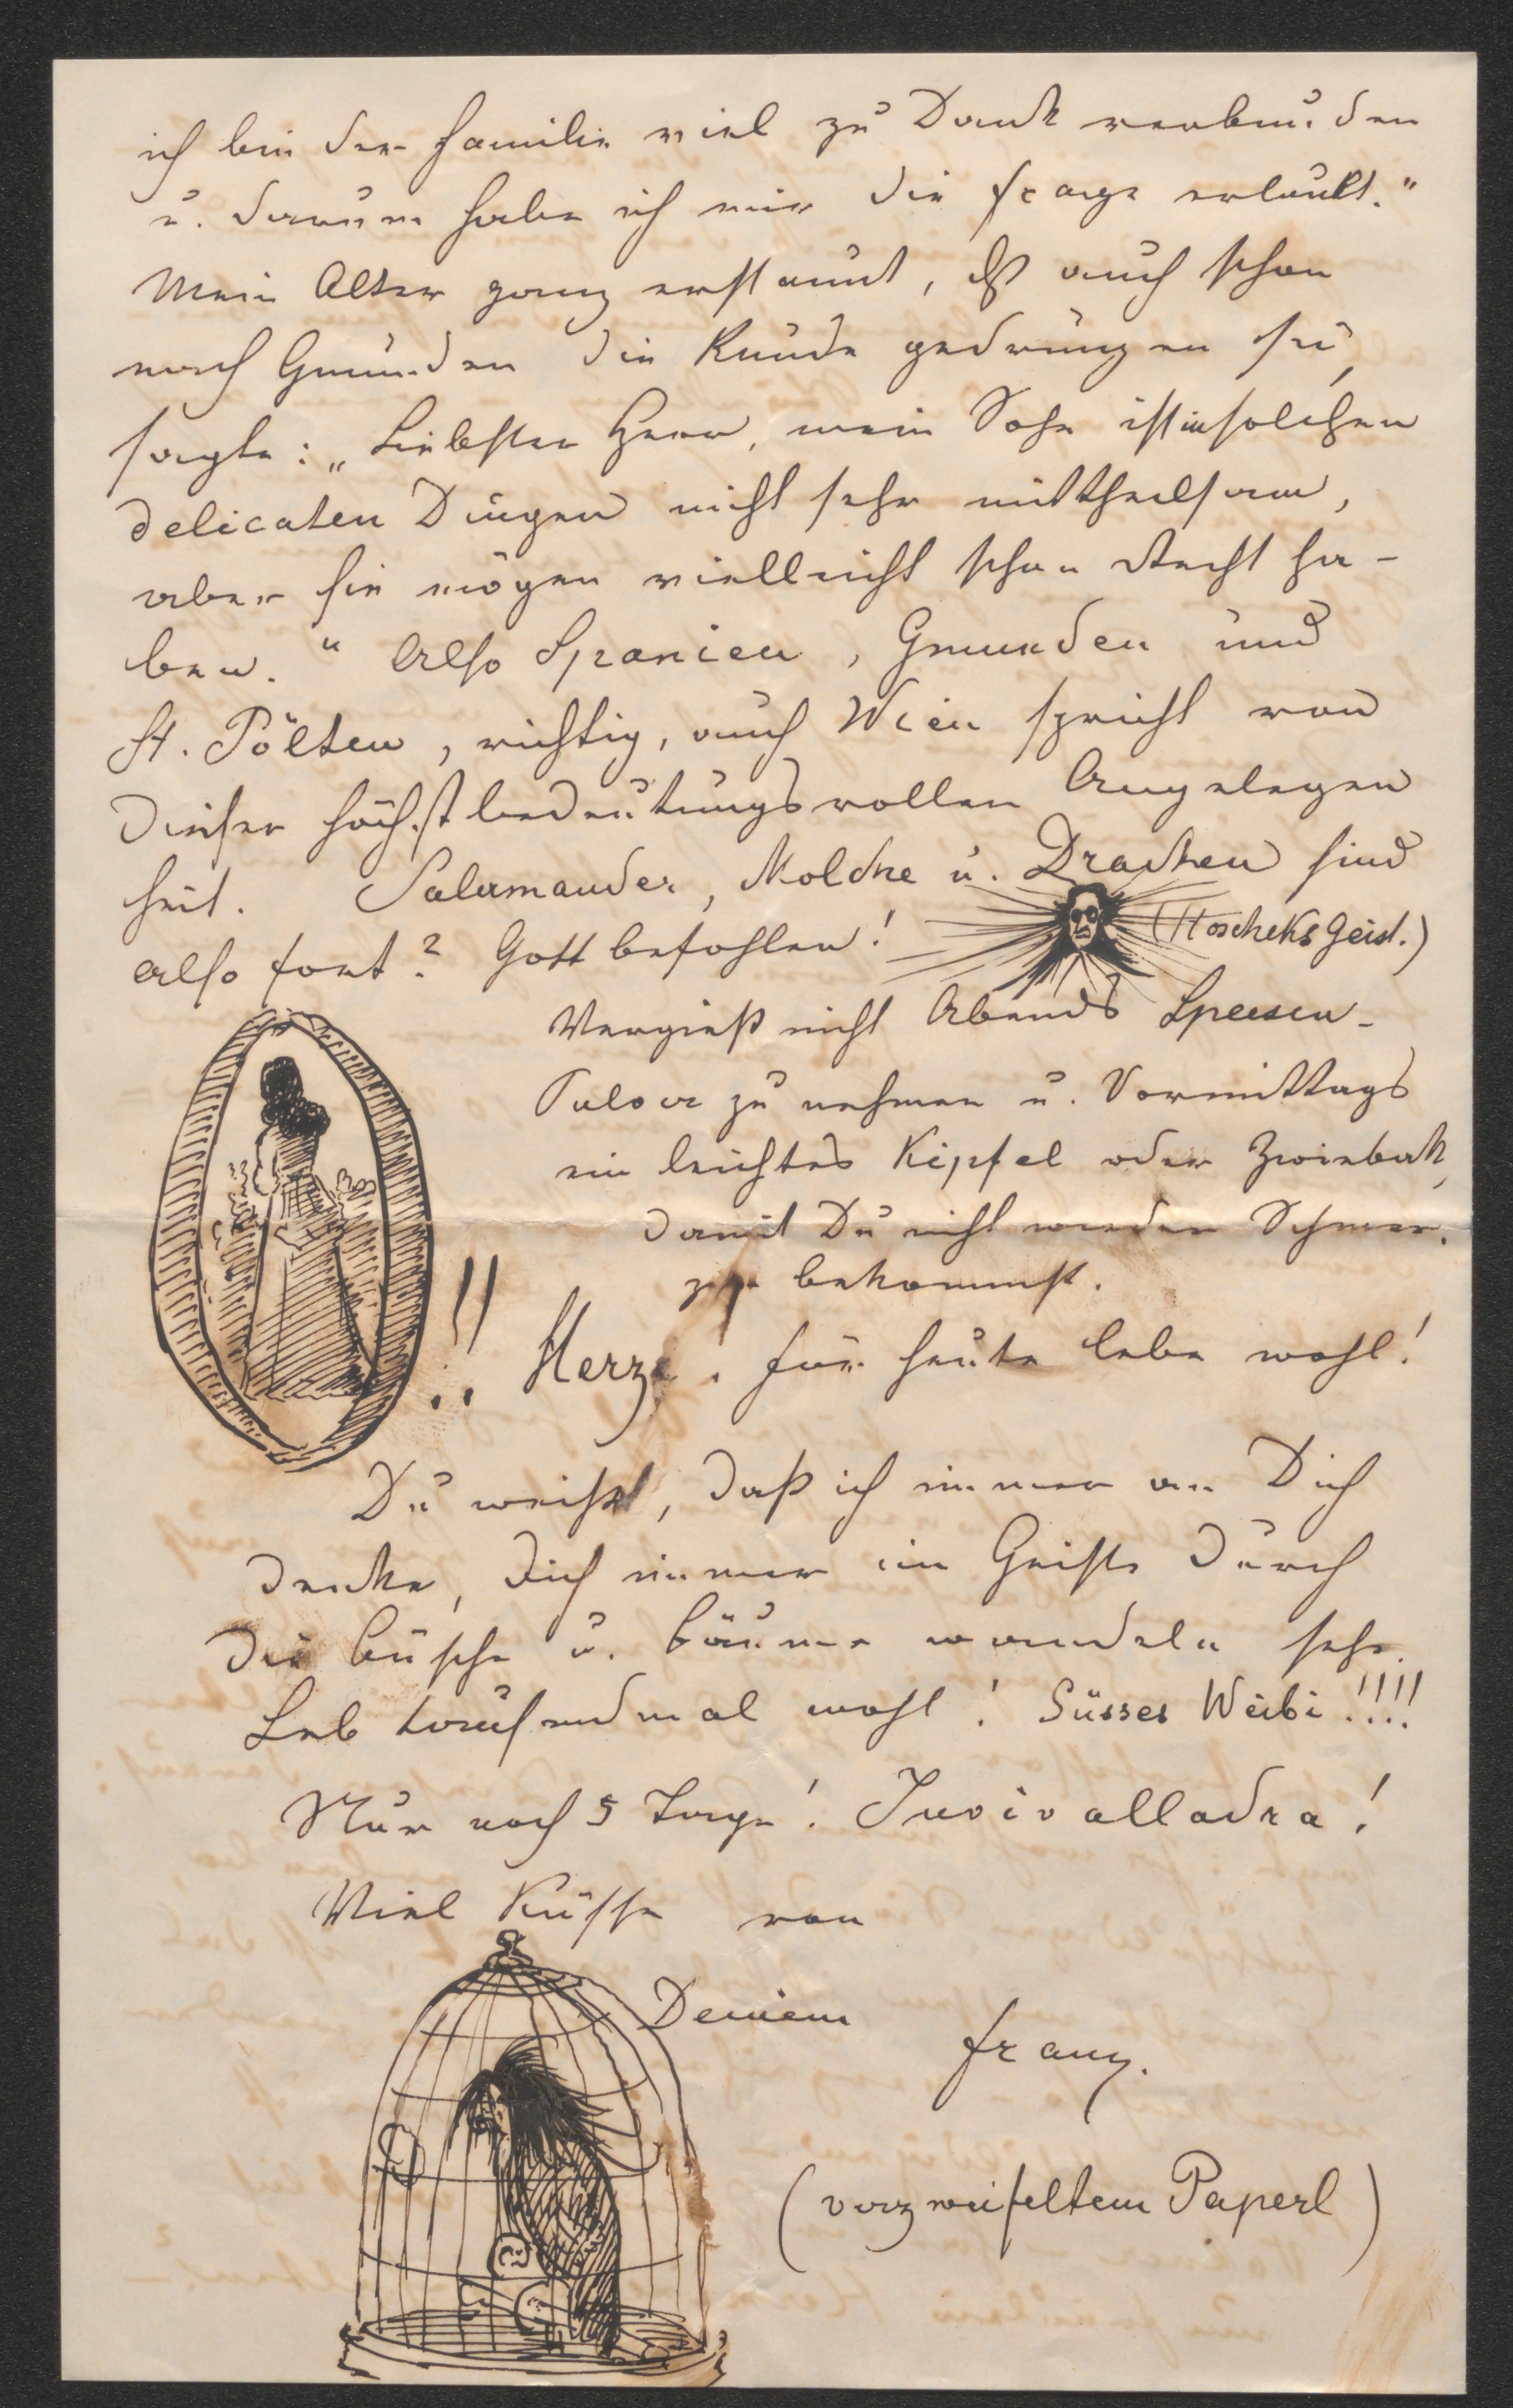 ich bin der Familie viel zu Dank verbunden
u. darum habe ich mir die Frage erlaubt."
Mein Alter ganz erstaunt, dß auch schon
nach Gmunden die Kunde gedrungen sei,
sagte: „Liebster Herr, mein Sohn ist in solchen
delicaten Dingen nicht sehr mittheilsam,
aber Sie mögen vielleicht schon Recht ha-
ben." Also Spanien, Gmunden und
St. Pölten, richtig, auch Wien spricht von
dieser höchst bedeutungsvollen Angelegen
heit. Salamander, Molche u. Drachen sind
also fort? Gott befohlen!
(Hoscheks Geist.)
Vergieß nicht Abends Speisen-
Pulver zu nehmen u. Vormittags
ein leichtes Kipfel oder Zwieback,
damit Du nicht wieder Schmer-
zen bekommst.
!! Herz. Für heute lebe wohl!
Du weißt, daß ich immer an Dich
denke, Dich immer im Geiste durch
die Büsche u. Bäume wandeln sehe.
Leb tausendmal wohl! Süsses Weibi!!!!
Nur noch 5 Tage! Juvivalladra!
Viel Küsse von
Deinem
Franz.
(verzweifeltem Paperl)